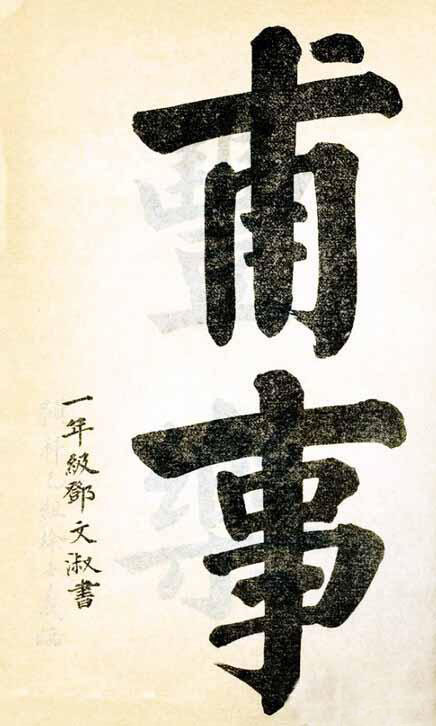 甫事
一年級鄧文淑書